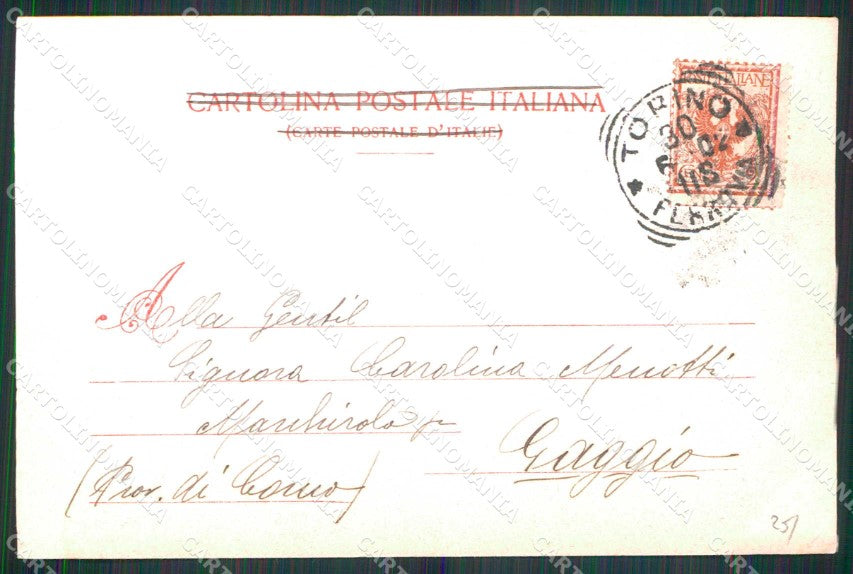 CARTOLINA POSTALE ITALIANA
(CARTE POSTALE D'ITALIE)
TORINO
30
02
11S
FERROVIA
Alla Gentil
Signora Carolina Menotti
Marchirolo per
Gaggio
(Prov. di Como)
25/
CARTOLINOMANIA